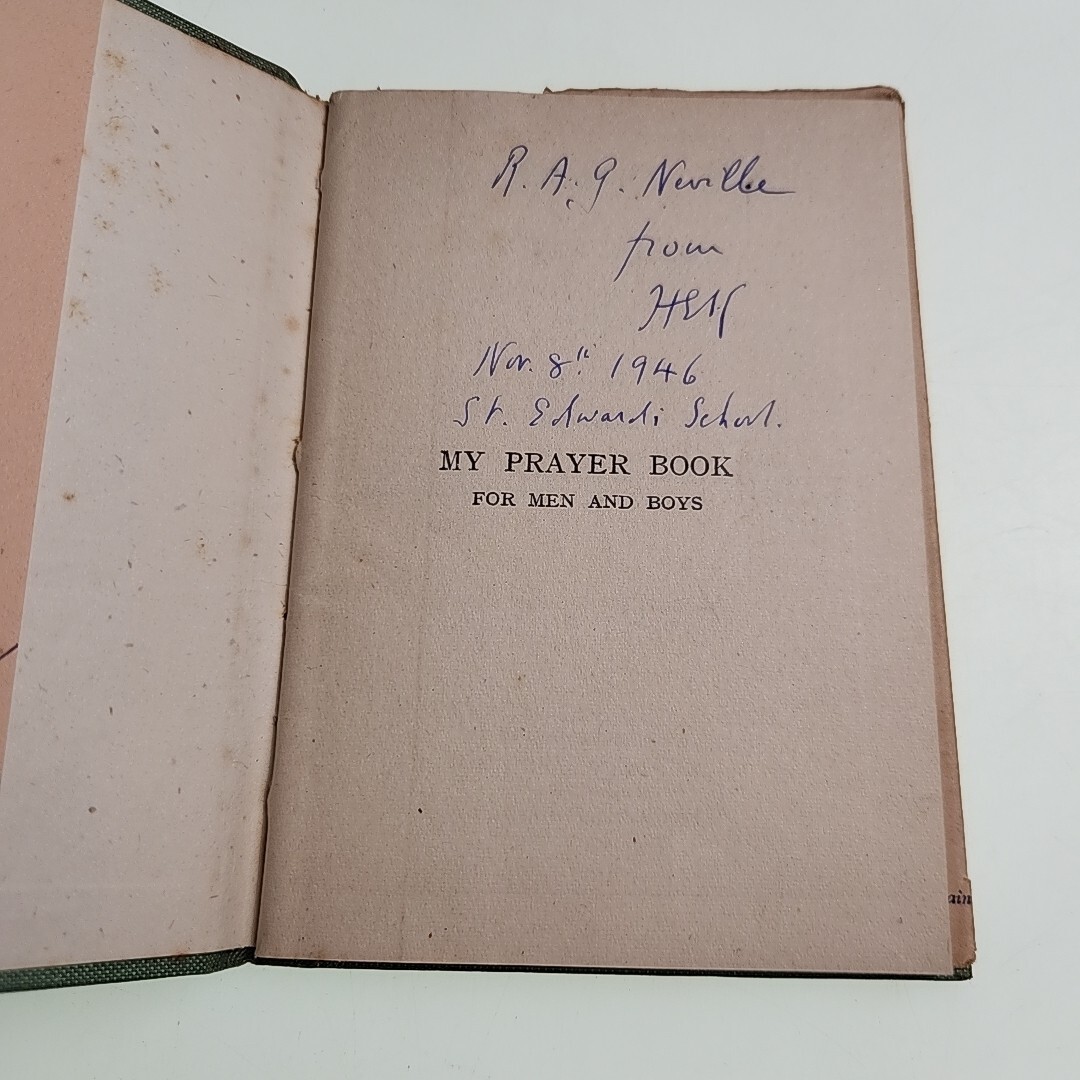 R. A. G. Neville
from
HEK
Nov. 8th 1946
St. Edwards School.
MY PRAYER BOOK
FOR MEN AND BOYS
ain